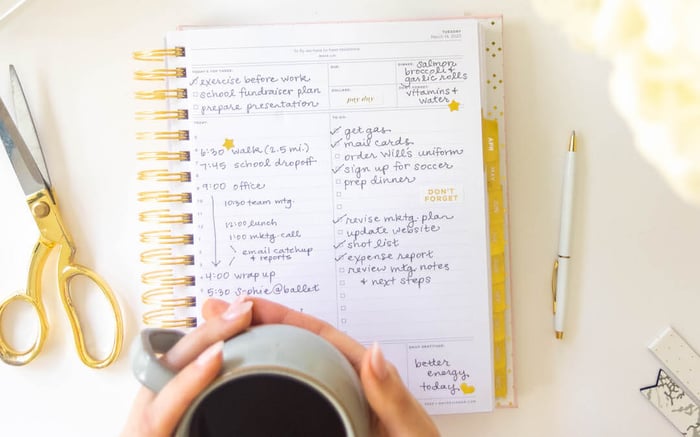 TUESDAY
March 14, 2023
TODAY'S TOP THREE:
exercise before work
school fundraiser plan
prepare presentation
DUE:
DOLLARS:
pay day
DINNER:
salmon
broccoli &
garlic rolls
DON'T FORGET:
vitamins +
water
TODAY
6:30 walk (2.5 mi.)
7:45 school dropoff
9:00 office
10:30 team mtg.
12:00 lunch
1:00 mktg. call
email catchup
& reports
4:00 wrap up
5:30 Sophie @ ballet
TO DO:
get gas
mail cards
order Will's uniform
sign up for soccer
prep dinner
DON'T
FORGET
revise mktg. plan
update website
shot list
expense report
review mtg notes
& next steps
DAILY GRATITUDE:
better
energy
today
APR
MAY